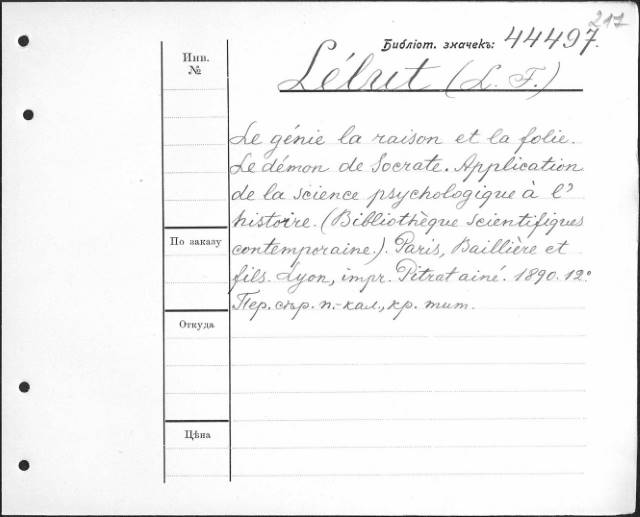 217
Библіот. значекъ: 44497.
Инв.
№
Lélut (L. F.)
Le génie la raison et la folie.
Le démon de Socrate. Application
de la science psychologique à l'
histoire. (Bibliothèque scientifiques
contemporaine.). Paris, Baillière et
По заказу
fils. Lyon, impr. Pitrat ainé. 1890. 12°
Пер. сѣр. п.-кал., кр. тит.
Откуда
Цѣна